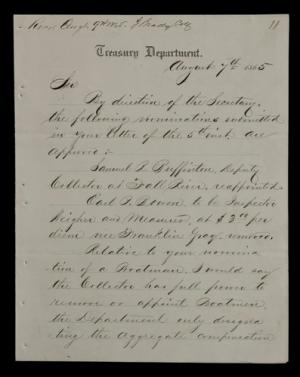 11
Treasury Department.
August 7th 1865
Sir
By direction of the Secretary,
the following nominations submitted
in your letter of the 5th inst. are
approved:-
Samuel L. Buffinton, Deputy
Collector at Fall River, reappointed
Earl P. to be Inspector
Weigher and Measurer, at $3.00 per
diem vice Franklin Gray, removed.
Relative to your nomina
tion of a Boatman, I would say
the Collector has full power to
remove or appoint Boatmen,
the Department only designa
ting the aggregate compensation